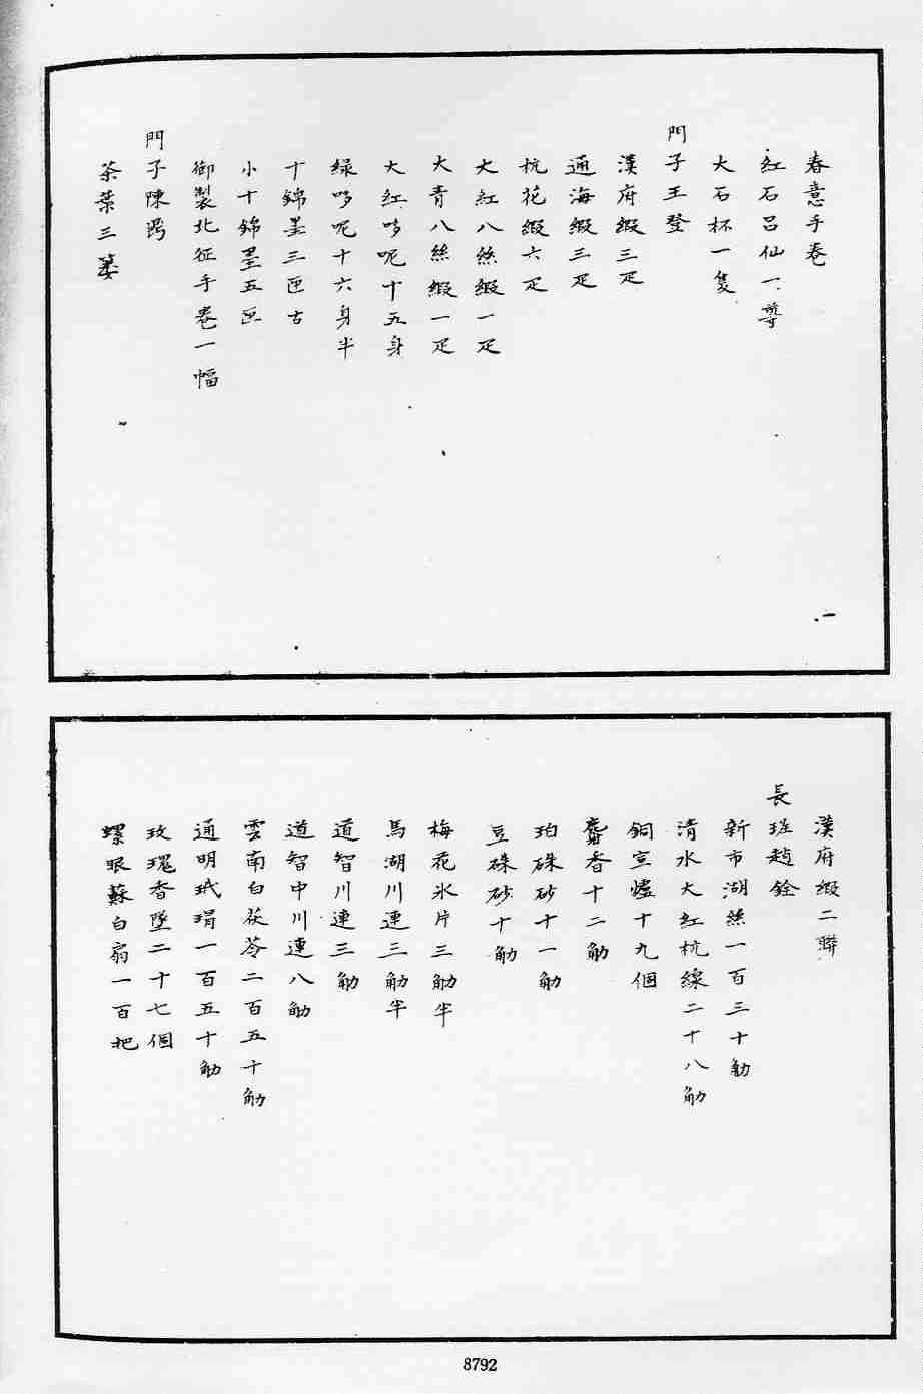 春意手卷
紅石呂仙一尊
大石杯一隻
門子王登
漢府緞三疋
通海緞三疋
杭花緞六疋
大紅八絲緞一疋
大青八絲緞一疋
大紅哆呢十五身
綠哆呢十六身半
十錦墨三匣古
小十錦墨五匣
御製北征手卷一幅
門子陳
茶葉三簍
漢府緞二聯
長班趙銓
新市湖絲一百三十觔
清水大紅杭線二十八觔
銅宣爐十九個
麝香十二觔
珀硃砂十一觔
豆硃砂十觔
梅花氷片三觔半
馬湖川連三觔半
道智川連三觔
道智中川連八觔
雲南白茯苓二百五十觔
通明玳瑁一百五十觔
玫瑰香墜二十七個
螺眼蘇白扇一百把
8792